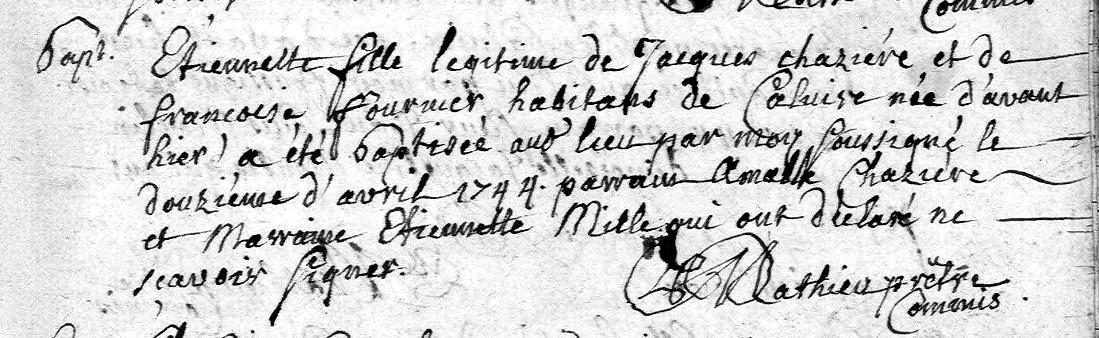 Commis
Bapt. Etiennette fille legitime de Jacques chaziére et de
francoise fournier habitans de Caluire née d'avant
hier a été baptisée aud lieu par moy soussigné le
douziéme d'avril 1744. parrain Amable Chaziére
et Marraine Etiennette Mille qui ont déclaré ne
scavoir signer.
Mathieu prêtre
Commis.